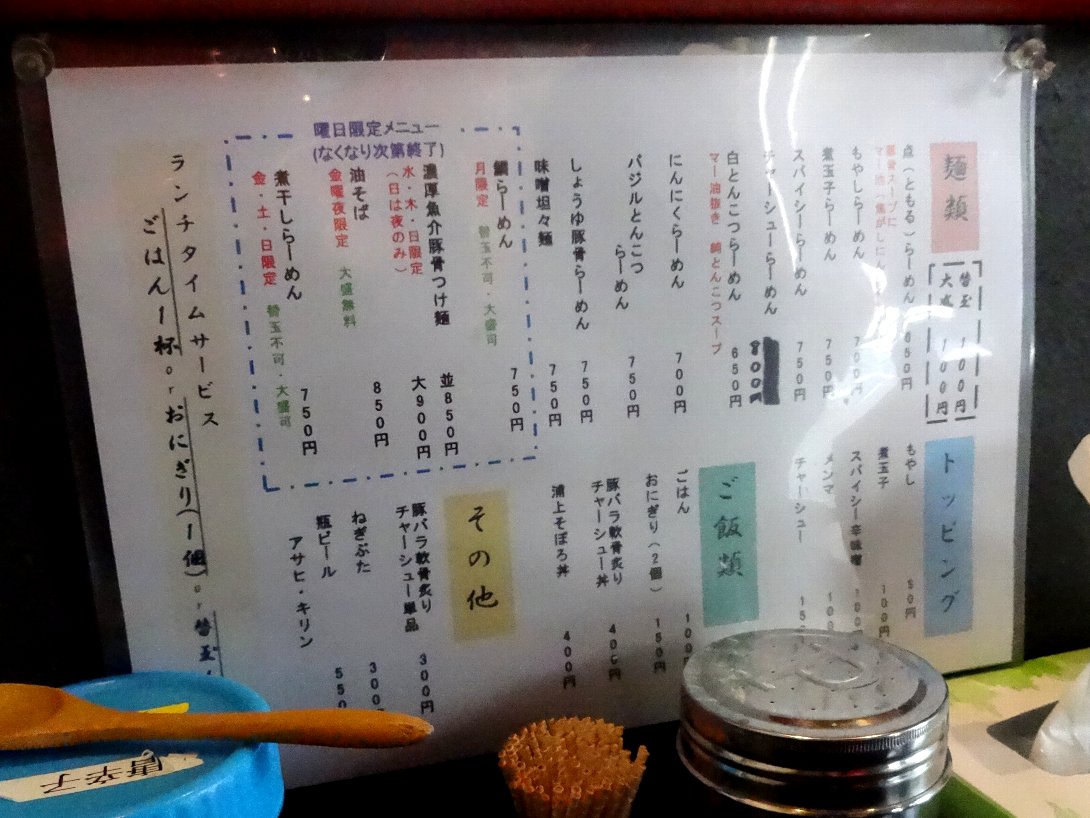 麺類
替玉 100円
大盛 100円
点(ともる)らーめん 650円
豚骨スープに
マー油(焦がしにん
もやしらーめん 700円
煮玉子らーめん 750円
スパイシーらーめん 750円
チャーシューらーめん 800円
白とんこつらーめん 650円
マー油抜き 純とんこつスープ
にんにくらーめん 700円
バジルとんこつ
らーめん 750円
しょうゆ豚骨らーめん 750円
味噌坦々麺 750円
曜日限定メニュー
(なくなり次第終了)
鯛らーめん 750円
月限定 替玉不可・大盛可
濃厚魚介豚骨つけ麺 並850円
大900円
水・木・日限定
(日は夜のみ)
油そば 850円
金曜夜限定 大盛無料
煮干しらーめん 750円
金・土・日限定 替玉不可・大盛可
ランチタイムサービス
ごはん1杯orおにぎり(1個)or替玉
トッピング
もやし 50円
煮玉子 100円
スパイシー辛味噌 100円
メンマ
チャーシュー
ご飯類
ごはん
おにぎり(2個) 150円
豚バラ軟骨炙り
チャーシュー丼 400円
浦上そぼろ丼 400円
その他
豚バラ軟骨炙り
チャーシュー単品 300円
ねぎぶた 300円
瓶ビール 550
アサヒ・キリン
唐辛子